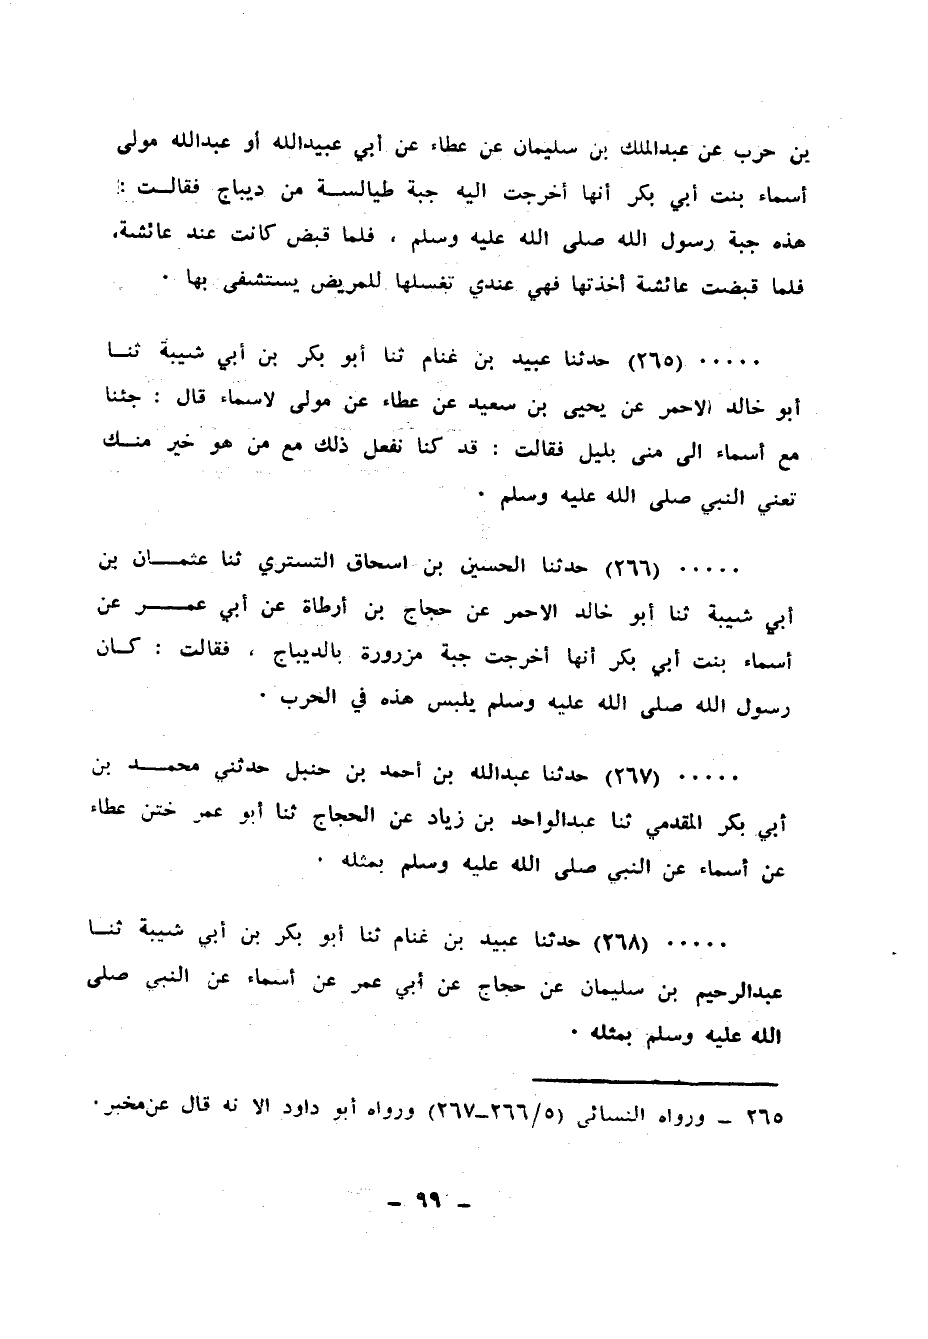 بن حرب عن عبدالملك بن سليمان عن عطاء عن أبي عبيدالله أو عبدالله مولى
أسماء بنت أبي بكر أنها أخرجت اليه جبة طيالسة من ديباج فقالت :
هذه جبة رسول الله صلى الله عليه وسلم ، فلما قبض كانت عند عائشة،
فلما قبضت عائشة أخذتها فهي عندي تغسلها للمريض يستشفى بها ٠
٠٠٠٠٠ (٢٦٥) حدثنا عبيد بن غنام ثنا أبو بكر بن أبي شيبة ثنا
أبو خالد الاحمر عن يحيى بن سعيد عن عطاء عن مولى لاسماء قال : جئنا
مع أسماء الى منى بليل فقالت : قد كنا نفعل ذلك مع من هو خير منك
تعني النبي صلى الله عليه وسلم ٠
٠٠٠٠٠ (٢٦٦) حدثنا الحسين بن اسحاق التستري ثنا عثمان بن
أبي شيبة ثنا أبو خالد الاحمر عن حجاج بن أرطاة عن أبي عمر عن
أسماء بنت أبي بكر أنها أخرجت جبة مزرورة بالديباج ، فقالت : كان
رسول الله صلى الله عليه وسلم يلبس هذه في الحرب ٠
٠٠٠٠٠ (٢٦٧) حدثنا عبدالله بن أحمد بن حنبل حدثني محمد بن
أبي بكر المقدمي ثنا عبدالواحد بن زياد عن الحجاج ثنا أبو عمر ختن عطاء
عن أسماء عن النبي صلى الله عليه وسلم بمثله ٠
٠٠٠٠٠ (٢٦٨) حدثنا عبيد بن غنام ثنا أبو بكر بن أبي شيبة ثنا
عبدالرحيم بن سليمان عن حجاج عن أبي عمر عن أسماء عن النبي صلى
الله عليه وسلم بمثله ٠
٢٦٥ – ورواه النسائي (٥/٢٦٦–٢٦٧) ورواه أبو داود الا نه قال عن مخبر ٠
– ٩٩ –